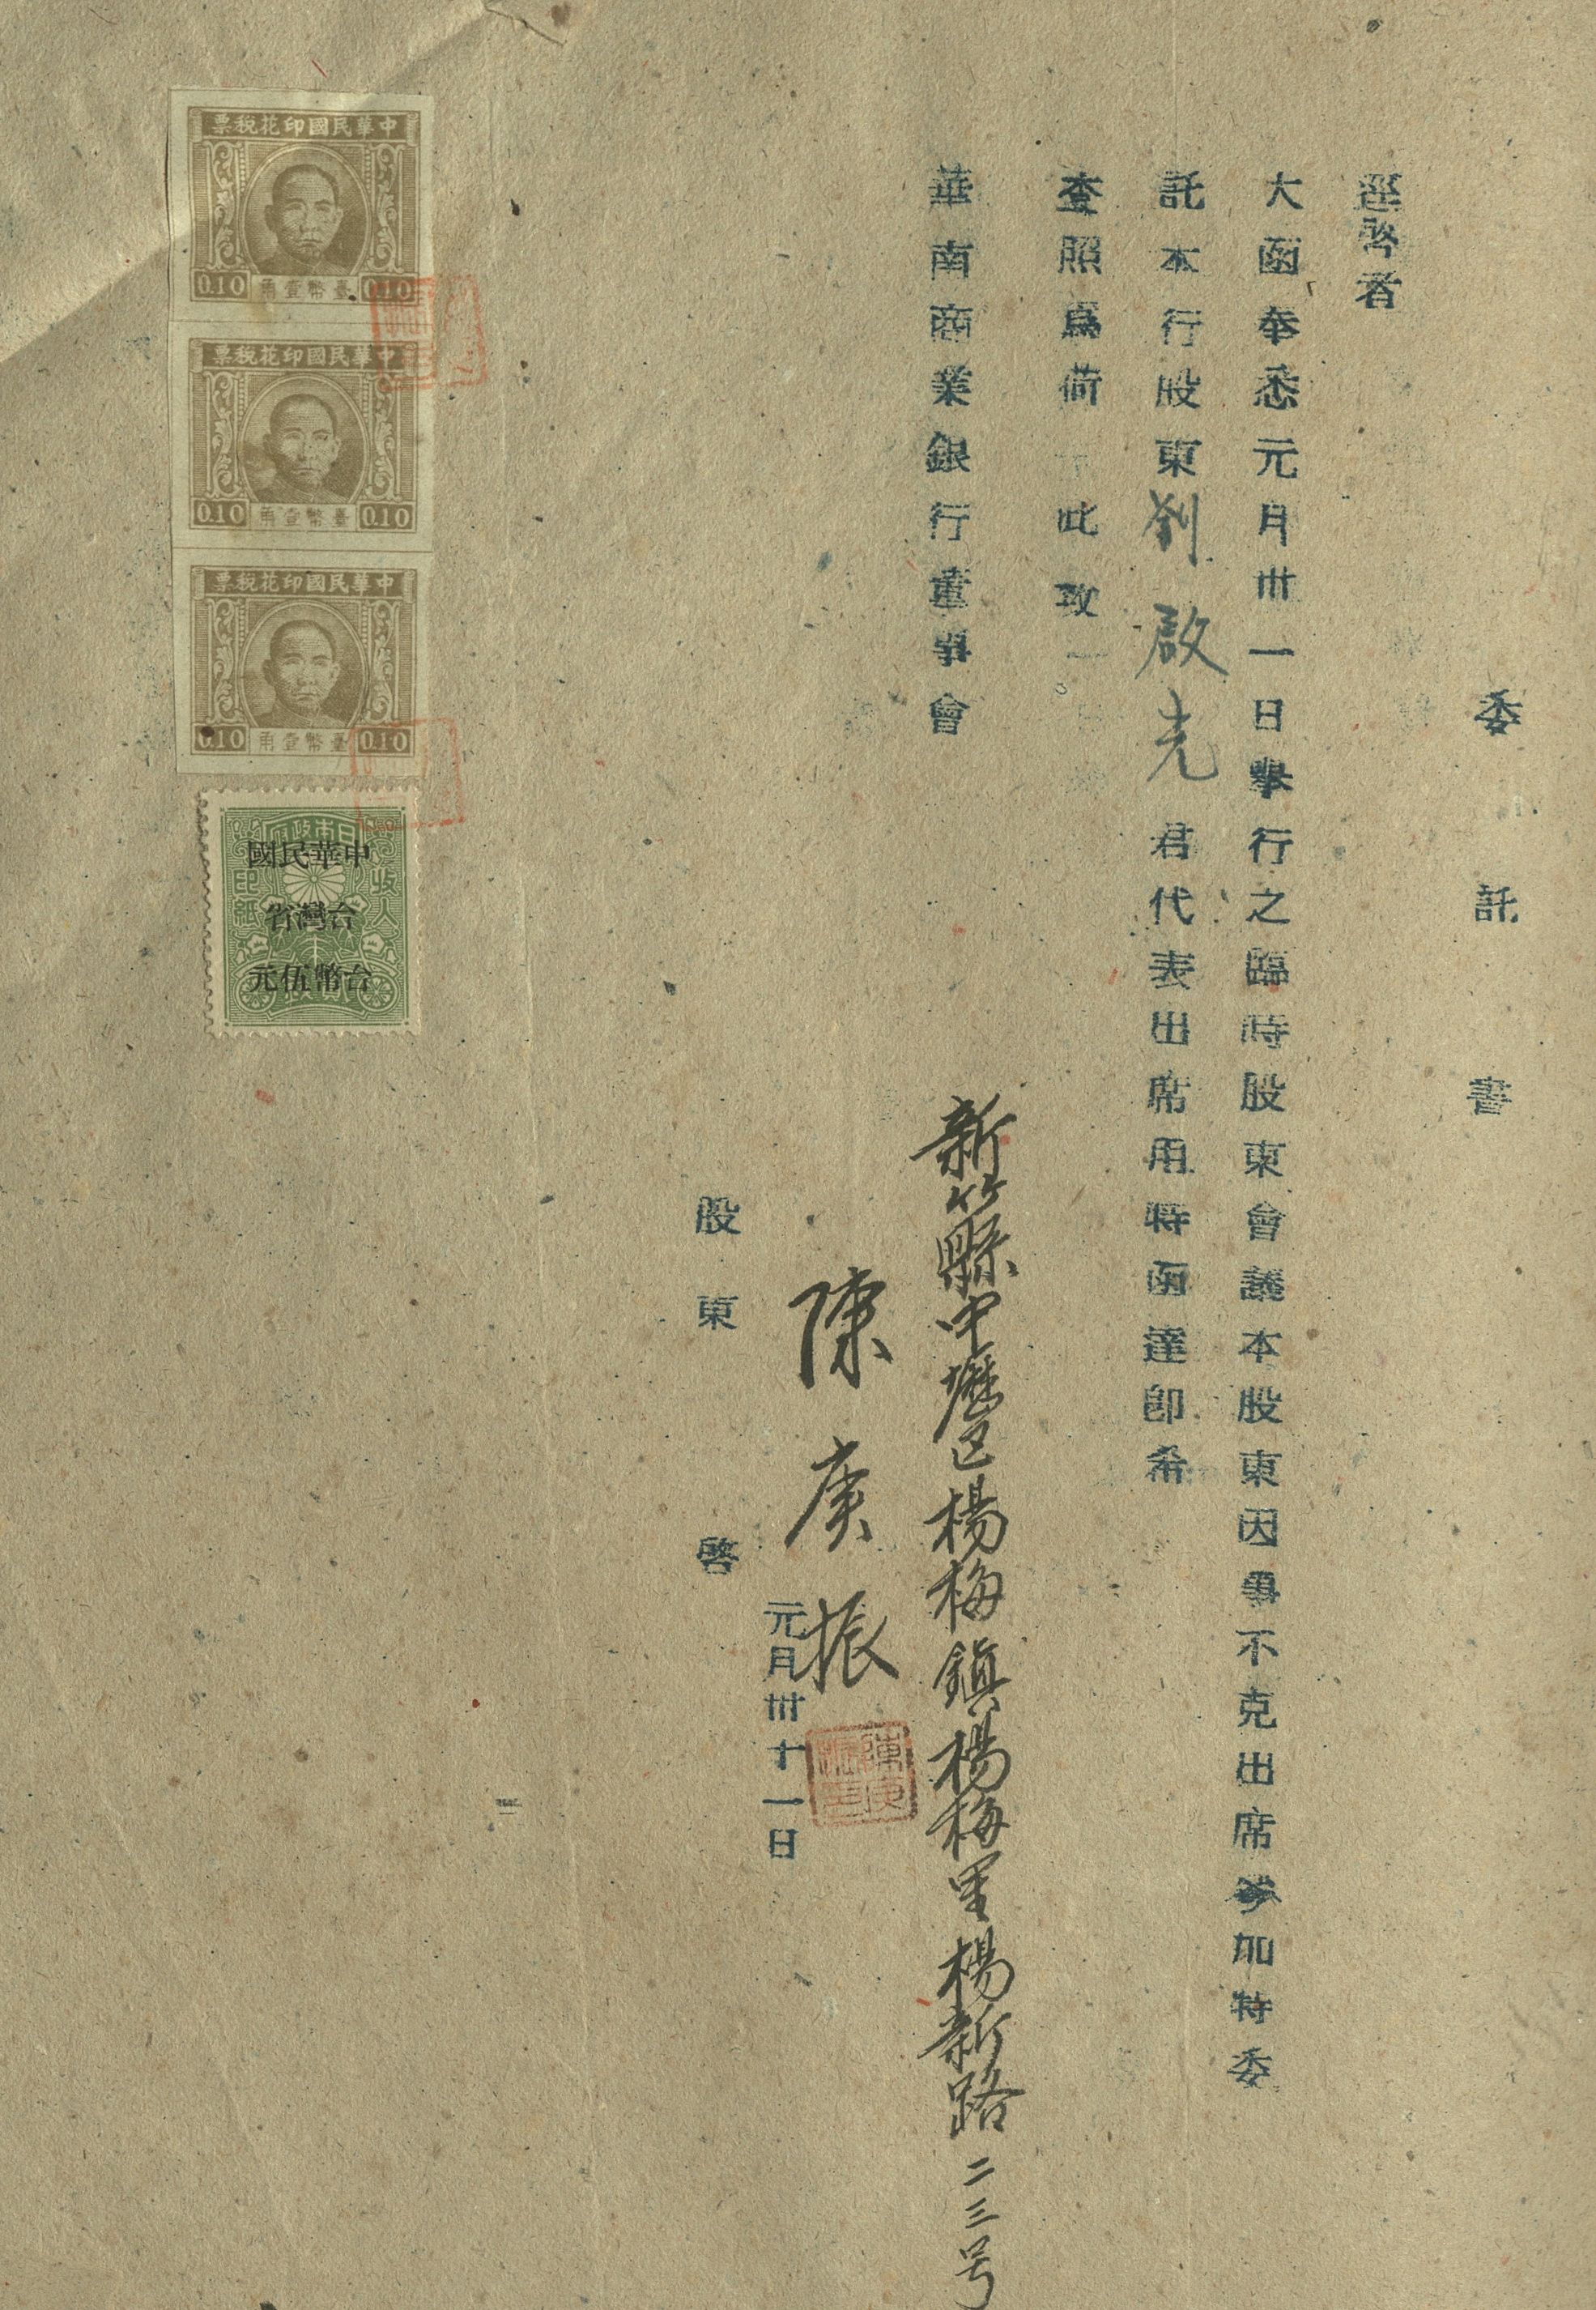 委託書
逕啓者
大函奉悉元月卅一日擧行之臨時股東會議本股東因事不克出席參加特委
託本行股東劉啟光君代表出席用特函達卽希
查照爲荷 此致
華南商業銀行董事會
新竹縣中壢區楊梅鎮楊梅里楊新路二三号
陳庚振
陳庚振印
元月卅十一日
股東 啓
中華民國印花稅票
0.10 臺幣壹角 0.10
中華民國印花稅票
0.10 臺幣壹角 0.10
中華民國印花稅票
0.10 臺幣壹角 0.10
日本政府
收入印紙
中華民國
台灣省
台幣伍元